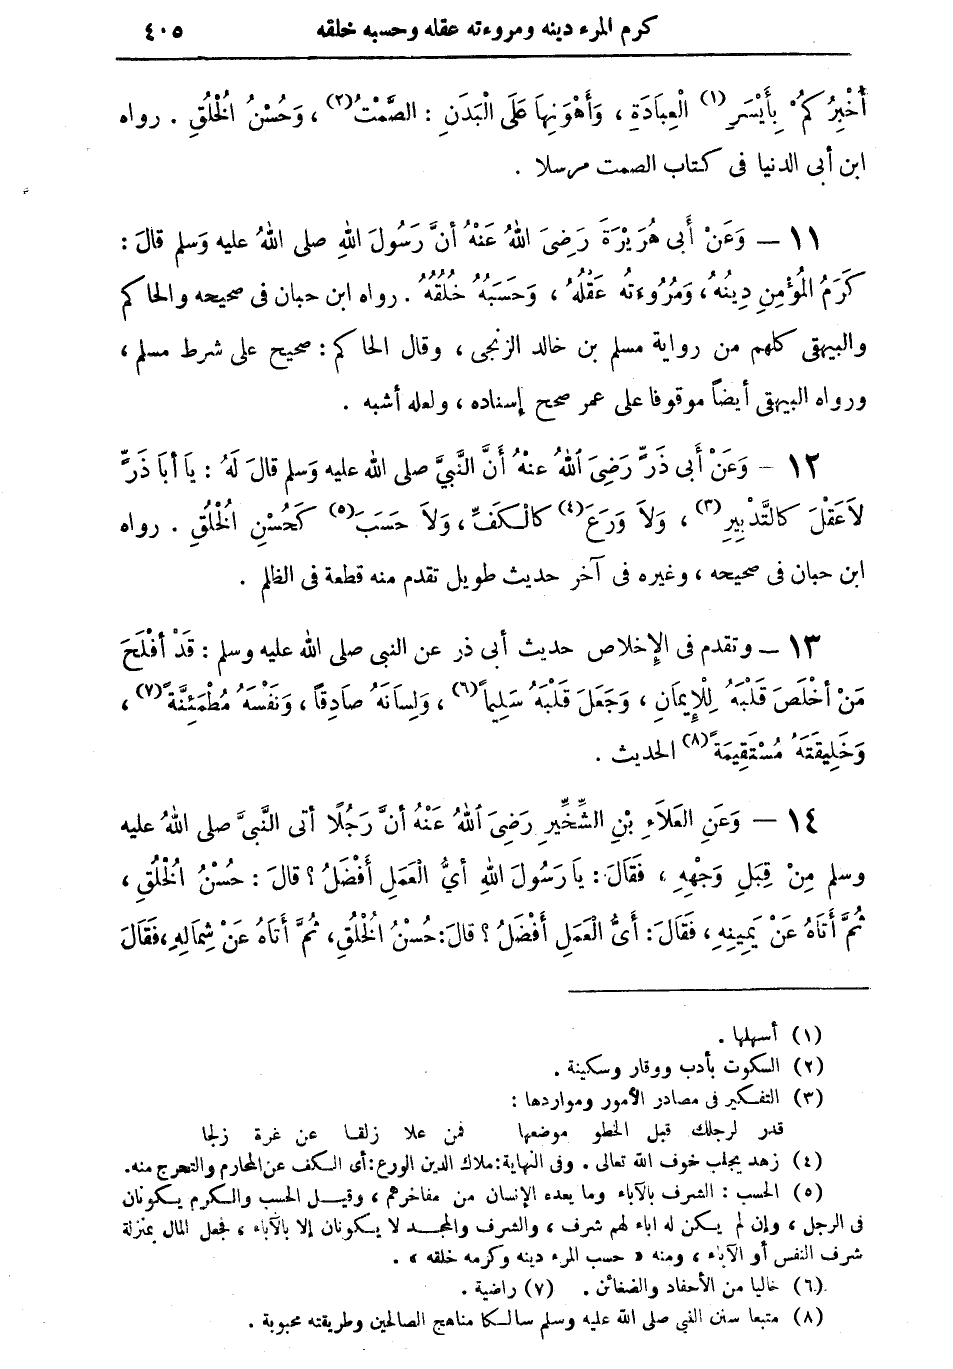 كرم المرء دينه ومروءته عقله وحسبه خلقه ٤٠٥
أُخْبِرُكُمْ بِأَيْسَرِ(١) الْعِبَادَةِ ، وَأَهْوَنِهَا عَلَى الْبَدَنِ : الصَّمْتُ(٢) ، وَحُسْنُ الْخُلُقِ . رواه
ابن أبى الدنيا فى كتاب الصمت مرسلا .
١١ — وَعَنْ أَبى هُرَيْرَةَ رَضِىَ اللهُ عَنْهُ أَنَّ رَسُولَ اللهِ صلى اللهُ عليه وَسلم قالَ :
كَرَمُ المُؤْمِنِ دِينُهُ ، وَمُرُوءَتُهُ عَقْلُهُ ، وَحَسَبُهُ خُلُقُهُ . رواه ابن حبان فى صحيحه والحاكم
والبيهقى كلهم من رواية مسلم بن خالد الزنجى ، وقال الحاكم : صحيح على شرط مسلم ،
ورواه البيهقى أيضاً موقوفا على عمر صحح إسناده ، ولعله أشبه .
١٢ — وَعَنْ أَبى ذَرٍّ رَضِىَ اللهُ عنْهُ أَنَّ النَّبِيَّ صلى الله عليه وَسلم قالَ لَهُ : يا أَبَا ذَرٍّ
لاَ عَقْلَ كالتَّدْبِيرِ(٣) ، وَلاَ وَرَعَ(٤) كالْكَفِّ ، وَلاَ حَسَبَ(٥) كَحُسْنِ الْخُلُقِ . رواه
ابن حبان فى صحيحه ، وغيره فى آخر حديث طويل تقدم منه قطعة فى الظلم .
١٣ — وتقدم فى الإخلاص حديث أبى ذر عن النبى صلى الله عليه وسلم : قَدْ أَفْلَحَ
مَنْ أَخْلَصَ قَلْبَهُ لِلْإِيمَانِ ، وَجَعَلَ قَلْبَهُ سَلِيماً(٦) ، وَلِسَانَهُ صَادِقاً ، وَنَفْسَهُ مُطْمَئِنَّةً(٧) ،
وَخَلِيقَتَهُ مُسْتَقِيمَةً(٨) الحديث .
١٤ — وَعَنِ الْعَلاَءِ بْنِ الشِّخِّيرِ رَضِىَ اللهُ عَنْهُ أَنَّ رَجُلًا أتى النَّبِيَّ صلى اللهُ عليه
وسلم مِنْ قِبَلِ وَجْهِهِ ، فَقَالَ : يا رَسُولَ اللهِ أىُّ الْعَمَلِ أَفْضَلُ ؟ قالَ : حُسْنُ الْخُلُقِ ،
ثُمَّ أَتَاهُ عَنْ يَمِينِهِ ، فَقَالَ : أَىُّ الْعَمَلِ أَفْضَلُ ؟ قالَ : حُسْنُ الْخُلُقِ ، ثُمَّ أَتَاهُ عَنْ شِمَالِهِ ، فَقَالَ
(١) أسهلها .
(٢) السكوت بأدب ووقار وسكينة .
(٣) التفكير فى مصادر الأمور ومواردها :
قدر لرجلك قبل الخطو موضعها فمن علا زلقا عن غرة زلجا
(٤) زهد يجلب خوف الله تعالى . وفى النهاية : ملاك الدين الورع : أى الكف عن المحارم والتحرج منه .
(٥) الحسب : الشرف بالآباء وما يعده الإنسان من مفاخرهم ، وقيل الحسب والكرم يكونان
فى الرجل ، وإن لم يكن له اباء لهم شرف ، والشرف والمجد لا يكونان إلا بالآباء ، فجعل المال بمنزلة
شرف النفس أو الآباء ، ومنه « حسب المرء دينه وكرمه خلقه » .
(٦) خاليا من الأحقاد والضغائن . (٧) راضية .
(٨) متبعا سنن النبى صلى الله عليه وسلم سالكا مناهج الصالحين وطريقته محبوبة .